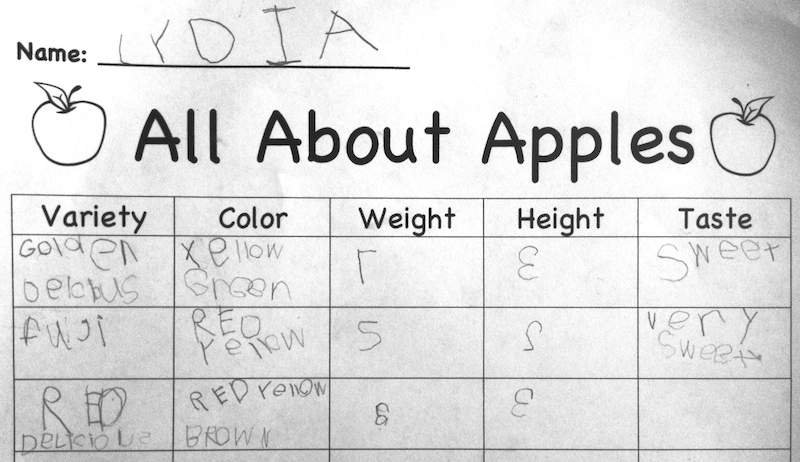 Name: LYDIA
All About Apples
Variety Color Weight Height Taste
Golden Yellow Sweet
Green
fuji RED very
Yellow 5 Sweet
RED RED Yellow 8 3
DELICIOUS BROWN